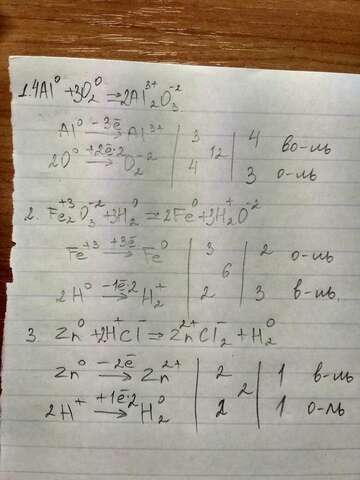 1. 4Al⁰ + 3O₂⁰ ⇒ 2Al₂³⁺O₃⁻²
Al⁰ —3ē→ Al³⁺ | 3 | 12 | 4 во-ль
2O⁰ +2ē·2→ O₂⁻² | 4 | 3 о-ль
2. Fe₂⁺³O₃⁻² + 3H₂⁰ ⇒ 2Fe⁰ + 3H₂⁺O⁻²
Fe⁺³ +3ē→ Fe⁰ | 3 | 6 | 2 о-ль
2H⁰ —1ē·2→ H₂⁺ | 2 | 3 в-ль.
3. Zn⁰ + 2H⁺Cl⁻ ⇒ Zn²⁺Cl₂⁻ + H₂⁰
Zn⁰ —2ē→ Zn²⁺ | 2 | 2 | 1 в-ль
2H⁺ +1ē·2→ H₂⁰ | 2 | 1 о-ль